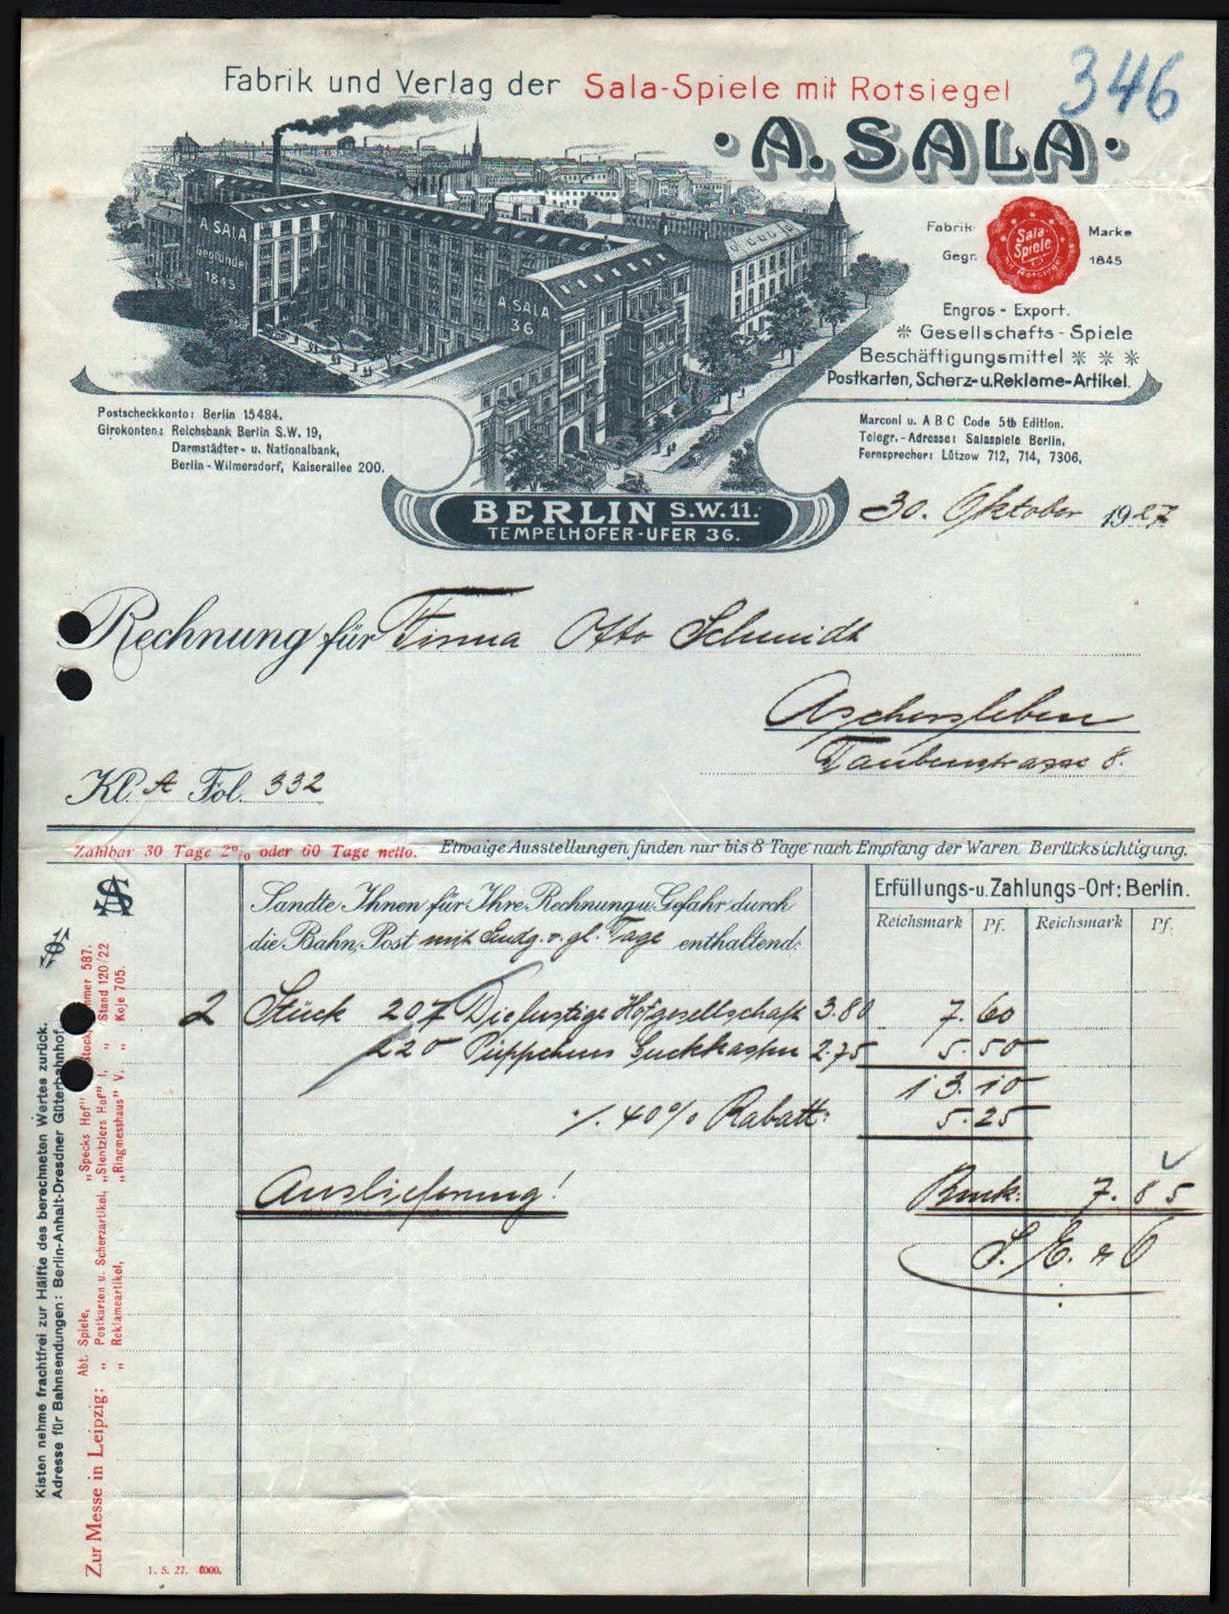 346
Fabrik und Verlag der Sala-Spiele mit Rotsiegel
· A. SALA ·
A SALA
gegründet
1845
A SALA
36
Fabrik- Marke
Gegr. 1845
Sala-
Spiele
mit Rotsiegel
Engros - Export.
Gesellschafts - Spiele
Beschäftigungsmittel
Postkarten, Scherz- u. Reklame-Artikel.
Postscheckkonto: Berlin 15484.
Girokonten: Reichsbank Berlin S.W. 19,
Darmstädter- u. Nationalbank,
Berlin - Wilmersdorf, Kaiserallee 200.
Marconi u. A B C Code 5th Edition.
Telegr.-Adresse: Salaspiele Berlin.
Fernsprecher: Lützow 712, 714, 7306,
BERLIN S.W. 11.
TEMPELHOFER-UFER 36.
30. Oktober 1927
Rechnung für Firma Otto Schmidt
Aschersleben
Taubenstrasse 8.
Kl. A Fol. 332
Zahlbar 30 Tage 2% oder 60 Tage netto. Etwaige Ausstellungen finden nur bis 8 Tage nach Empfang der Waren Berücksichtigung.
AS
Sandte Ihnen für Ihre Rechnung u. Gefahr durch
die Bahn, Post mit Sendg. v. gl. Tage enthaltend:
Erfüllungs- u. Zahlungs-Ort: Berlin.
Reichsmark Pf. Reichsmark Pf.
2 Stück 207 Die lustige Hofgesellschaft 3.80 7.60
2 220 Püppchens Guckkasten 2.75 5.50
13.10
./. 40% Rabatt: 5.25
Auslieferung! 7.85
S. E. & O
Kisten nehme frachtfrei zur Hälfte des berechneten Wertes zurück.
Adresse für Bahnsendungen: Berlin-Anhalt-Dresdner Güterbahnhof.
Zur Messe in Leipzig: Abt. Spiele, „Specks Hof" 587.
„ Postkarten u. Scherzartikel, „Stentzlers Hof" I. „ Stand 120/22
„ Reklameartikel, „Ringmesshaus" V. „ Koje 705.
1. S. 27. 6000.